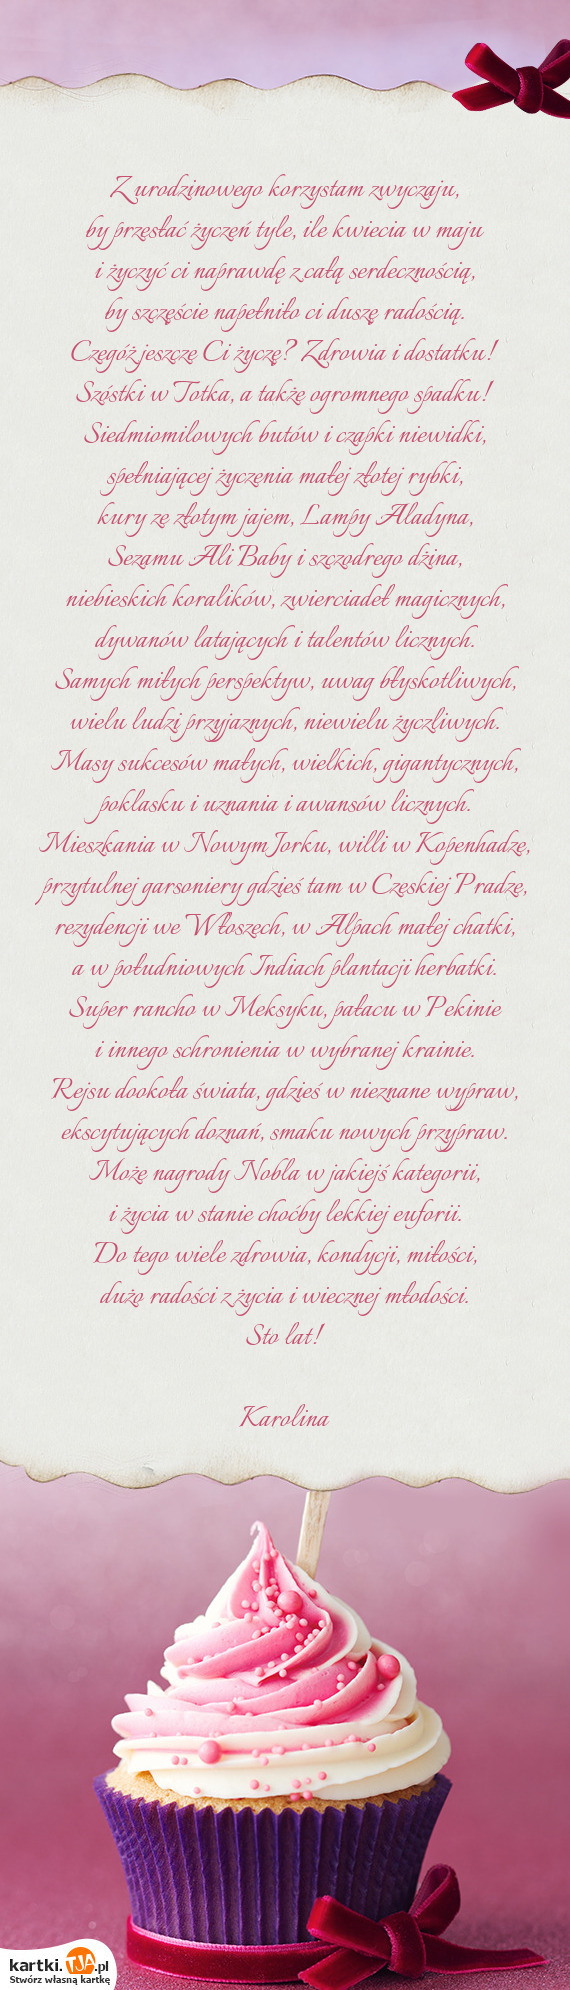 Z urodzinowego korzystam zwyczaju,
by przesłać życzeń tyle, ile kwiecia w maju
i życzyć ci naprawdę z całą serdecznością,
by szczęście napełniło ci duszę radością.
Czegóż jeszcze Ci życzę? Zdrowia i dostatku!
Szóstki w Totka, a także ogromnego spadku!
Siedmiomilowych butów i czapki niewidki,
spełniającej życzenia małej złotej rybki,
kury ze złotym jajem, Lampy Aladyna,
Sezamu Ali Baby i szczodrego dżina,
niebieskich koralików, zwierciadeł magicznych,
dywanów latających i talentów licznych.
Samych miłych perspektyw, uwag błyskotliwych,
wielu ludzi przyjaznych, niewielu życzliwych.
Masy sukcesów małych, wielkich, gigantycznych,
poklasku i uznania i awansów licznych.
Mieszkania w Nowym Jorku, willi w Kopenhadze,
przytulnej garsoniery gdzieś tam w Czeskiej Pradze,
rezydencji we Włoszech, w Alpach małej chatki,
a w południowych Indiach plantacji herbatki.
Super rancho w Meksyku, pałacu w Pekinie
i innego schronienia w wybranej krainie.
Rejsu dookoła świata, gdzieś w nieznane wypraw,
ekscytujących doznań, smaku nowych przypraw.
Może nagrody Nobla w jakiejś kategorii,
i życia w stanie choćby lekkiej euforii.
Do tego wiele zdrowia, kondycji, miłości,
dużo radości z życia i wiecznej młodości.
Sto lat!
Karolina
kartki.TJA.pl
Stwórz własną kartkę